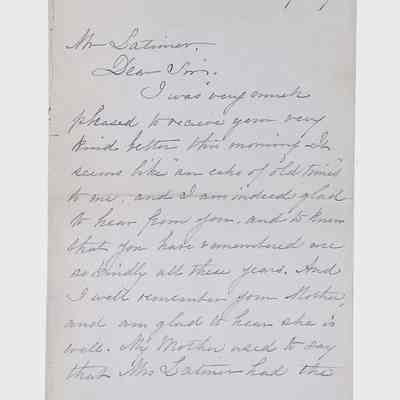 Mr Latimer.
Dear Sir.
I was very much
pleased to recieve your very
kind letter this morning. It
seems like "an echo of old times"
to me, and I am indeed glad
to hear from you, and to know
that you have remembered me
so kindly all these years. And
I well remember your Mother,
and am glad to hear she is
well. My Mother used to say
that Mrs Latimer had the